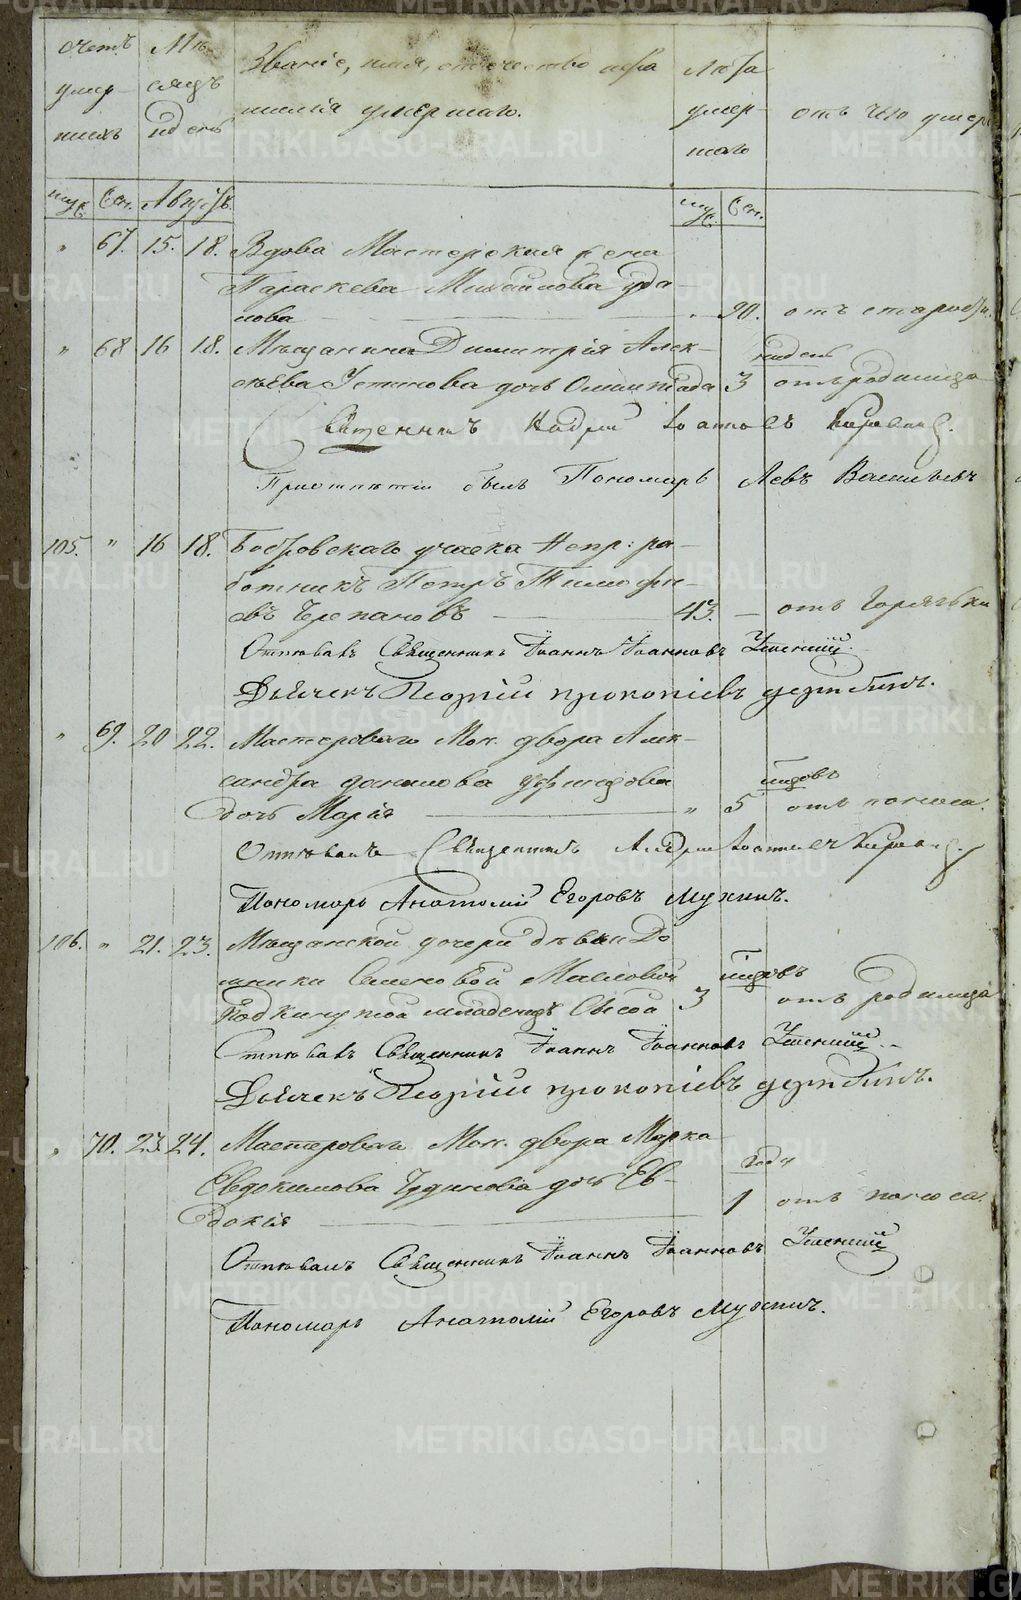 Счетъ умер- шихъ
Мѣ- сяцъ и день
Званіе, имя, отчество и фа- милія умершаго.
Лѣта умер- шаго
отъ чего умер
муж. жен. Августъ. муж. жен.
" 67. 15. 18. Вдова Мастерская жена
Параскева Михайлова
" 90. отъ старости.
" 68 16 18. Мѣщанина Димитрія Алек-
недель
сѣева Устинова дочь Олимпіада 3 отъ родимца
Священникъ Андрей Іоанновъ
При отпѣтіи былъ Пономарь Левъ Васильевъ
105. " 16 18. Бобровскаго участка Непр: ра-
ботникъ Петръ Тимофѣ-
евъ Черепановъ 43. — отъ Горячьки
Отпѣвалъ Священникъ Іоаннъ Іоанновъ
Дьячекъ Георгій Прокопіевъ Дерябинъ.
" 69. 20 22. Мастероваго Мон. двора Алек-
сандра Данилова
годовъ
дочь Марія " 5 отъ поноса.
Отпѣвалъ Священникъ Андрей Іоанновъ
Пономарь Анатолій Егоровъ Мухинъ.
106. " 21. 23. Мѣщанской дочери дѣвки До-
мники Семеновой Масловой
годовъ
Подкинутой младенецъ 3 отъ родимца
Отпѣвалъ Священникъ Іоаннъ Іоанновъ
Дьячекъ Георгій Прокопіевъ Дерябинъ.
" 70. 23. 24. Мастероваго Мон. двора Марка
года
Евдокимова Чудинова дочь Ев-
1 отъ поноса.
докія
Отпѣвалъ Священникъ Іоаннъ Іоанновъ
Пономарь Анатолій Егоровъ Мухинъ.
METRIKI.GASO-URAL.RU